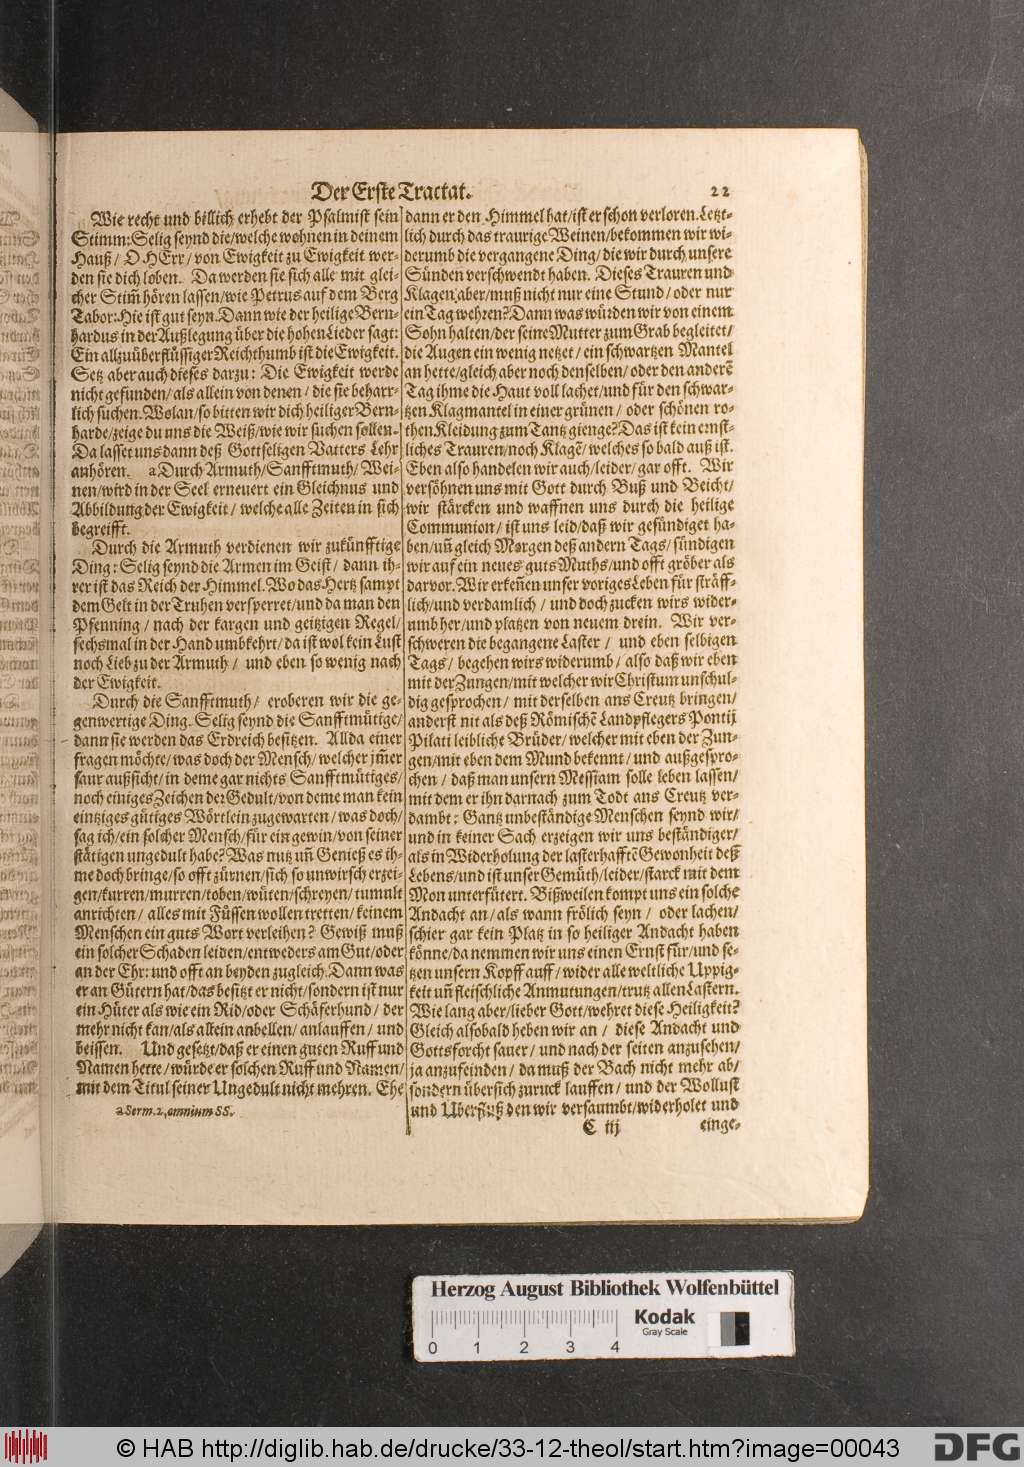 Der Erste Tractat.
22
Wie recht und billich erhebt der Psalmist sein
Stimm: Selig seynd die/welche wohnen in deinem
Hauß/ O HErr/ von Ewigkeit zu Ewigkeit wer-
den sie dich loben. Da werden sie sich alle mit glei-
cher Stim̃ hören lassen/wie Petrus auf dem Berg
Tabor: Hie ist gut seyn. Dann wie der heilige Bern-
hardus in der Außlegung über die hohen Lieder sagt:
Ein allzuüberflüssiger Reichthumb ist die Ewigkeit.
Setz aber auch dieses darzu: Die Ewigkeit werde
nicht gefunden/als allein von denen/ die sie beharr-
lich suchen. Wolan/so bitten wir dich heiliger Bern-
harde/zeige du uns die Weiß/wie wir suchen sollen.
Da lasset uns dann deß Gottseligen Vatters Lehr
anhören. a Durch Armuth/Sanfftmuth/ Wei-
nen/wird in der Seel erneuert ein Gleichnus und
Abbildung der Ewigkeit/ welche alle Zeiten in sich
begreifft.
Durch die Armuth verdienen wir zukünfftige
Ding: Selig seynd die Armen im Geist/ dann ih-
rer ist das Reich der Himmel. Wo das Hertz sampt
dem Gelt in der Truhen versperret/und da man den
Pfenning/ nach der kargen und geitzigen Regel/
sechsmal in der Hand umbkehrt/da ist wol kein Lust
noch Lieb zu der Armuth/ und eben so wenig nach
der Ewigkeit.
Durch die Sanfftmuth/ eroberen wir die ge-
genwertige Ding. Selig seynd die Sanfftmütige/
dann sie werden das Erdreich besitzen. Allda einer
fragen möchte/was doch der Mensch/welcher jm̃er
saur außsicht/in deme gar nichts Sanfftmütiges/
noch einiges Zeichen der Gedult/von deme man kein
eintziges gütiges Wörtlein zugewarten/was doch/
sag ich/ein solcher Mensch/für ein gewin/von seiner
stätigen ungedult habe? Was nutz uñ Genieß es ih-
me doch bringe/so offt zürnen/sich so unwirsch erzei-
gen/kurren/murren/toben/wüten/schreyen/tumult
anrichten/ alles mit Füssen wollen tretten/keinem
Menschen ein guts Wort verleihen? Gewiß muß
ein solcher Schaden leiden/entweders am Gut/oder
an der Ehr: und offt an beyden zugleich. Dann was
er an Gütern hat/das besitzt er nicht/sondern ist nur
ein Hüter als wie ein Rid/oder Schäferhund/ der
mehr nicht kan/als allein anbellen/anlauffen/ und
beissen. Und gesetzt/daß er einen guten Ruff und
Namen hette/würde er solchen Ruff und Namen/
mit dem Titul seiner Ungedult nicht mehren. Ehe
a Serm. 2, omnium SS.
dann er den Himmel hat/ist er schon verloren. Letzt-
lich durch das traurige Weinen/bekommen wir wi-
derumb die vergangene Ding/die wir durch unsere
Sünden verschwendt haben. Dieses Trauren und
Klagen aber/muß nicht nur eine Stund/ oder nur
ein Tag wehren? Dann was würden wir von einem
Sohn halten/der seine Mutter zum Grab begleitet/
die Augen ein wenig netzet/ein schwartzen Mantel
an hette/gleich aber noch denselben/oder den anderẽ
Tag ihme die Haut voll lachet/und für den schwar-
tzen Klagmantel in einer grünen/ oder schönen ro-
then Kleidung zum Tantz gienge? Das ist kein ernst-
liches Trauren/noch Klagẽ/welches so bald auß ist.
Eben also handelen wir auch/leider/gar offt. Wir
versöhnen uns mit Gott durch Buß und Beicht/
wir stärcken und waffnen uns durch die heilige
Communion/ ist uns leid/daß wir gesündiget ha-
ben/uñ gleich Morgen deß andern Tags/sündigen
wir auf ein neues guts Muths/und offt gröber als
darvor. Wir erkeñen unser voriges Leben für sträff-
lich/und verdamlich/ und doch zucken wirs wider-
umb her/und platzen von neuem drein. Wir ver-
schweren die begangene Laster/ und eben selbigen
Tags/ begehen wirs widerumb/also daß wir eben
mit der Zungen/mit welcher wir Christum unschul-
dig gesprochen/ mit derselben ans Creutz bringen/
anderst nit als deß Römischẽ Landpflegers Pontij
Pilati leibliche Brüder/welcher mit eben der Zun-
gen/mit eben dem Mund bekennt/und außgespro-
chen/ daß man unsern Messiam solle leben lassen/
mit dem er ihn darnach zum Todt ans Creutz ver-
dambt: Gantz unbeständige Menschen seynd wir/
und in keiner Sach erzeigen wir uns beständiger/
als in Widerholung der lasterhafftẽ Gewonheit deß
Lebens/und ist unser Gemüth/leider/starck mit dem
Mon unterfütert. Bißweilen kompt uns ein solche
Andacht an/als wann frölich seyn/ oder lachen/
schier gar kein Platz in so heiliger Andacht haben
könne/da nemmen wir uns einen Ernst für/und se-
tzen unsern Kopff auff/wider alle weltliche Uppig-
keit uñ fleischliche Anmutungen/trutz allen Lastern.
Wie lang aber/lieber Gott/wehret diese Heiligkeit?
Gleich alsobald heben wir an/ diese Andacht und
Gottsforcht sauer/und nach der seiten anzusehen/
ja anzufeinden/ da muß der Bach nicht mehr ab/
sondern übersich zuruck lauffen/ und der Wollust
und Uberfluß den wir versaumbt/widerholet und
C iij
einge-
Herzog August Bibliothek Wolfenbüttel
Kodak
Gray Scale
0 1 2 3 4
© HAB http://diglib.hab.de/drucke/33-12-theol/start.htm?image=00043
DFG